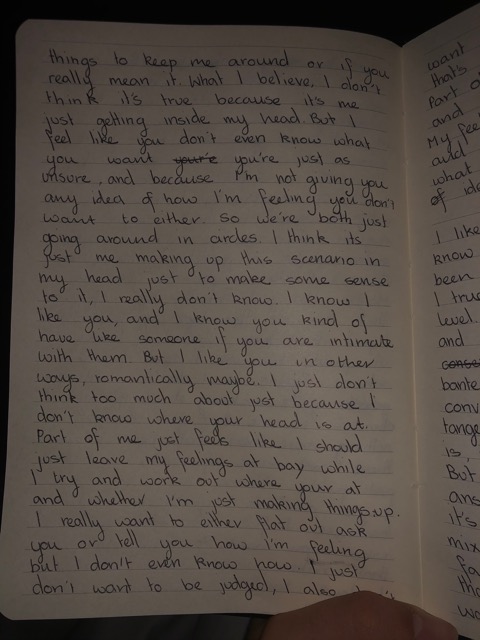 things to keep me around or if you
really mean it. What I believe, I don't
think it's true because it's me
just getting inside my head. But I
feel like you don't even know what
you want your'e you're just as
unsure, and because I'm not giving you
any idea of how I'm feeling you don't
want to either. So we're both just
going around in circles. I think its
just me making up this scenario in
my head just to make some sense
to it, I really don't know. I know I
like you, and I know you kind of
have like someone if you are intimate
with them. But I like you in other
ways, romantically maybe. I just don't
think too much about just because I
don't know where your head is at.
Part of me just feels like I should
just leave my feelings at bay while
I try and work out where your at
and whether I'm just making things up.
I really want to either flat out ask
you or tell you how I'm feeling
but I don't even know how. I just
don't want to be judged, I also
want
that's
Part
and
My
and
what
of
I like
know
been
I
level.
and
is,
But
it's